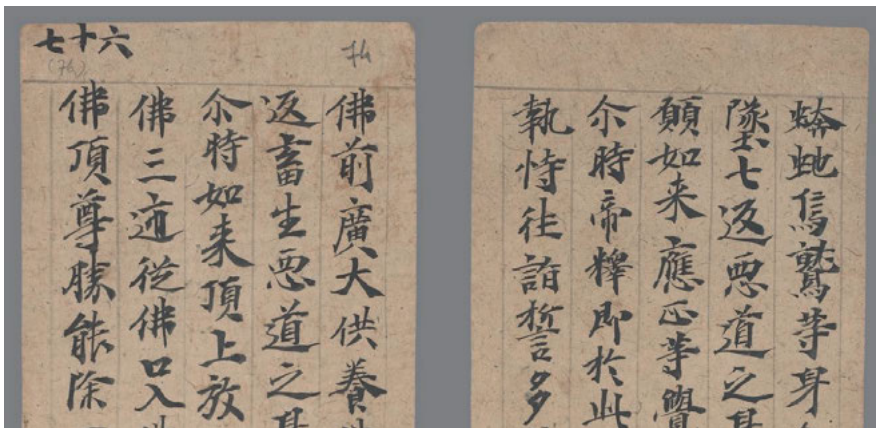 蟒虵烏鷲等身
墜七返惡道之身
願如来應正等覺
尒時帝釋即於此
執恃往詣誓多
七十六
(76)
76
佛前廣大供養
返畜生惡道之身
尒時如来頂上放
佛三迊從佛口入
佛頂尊勝能除